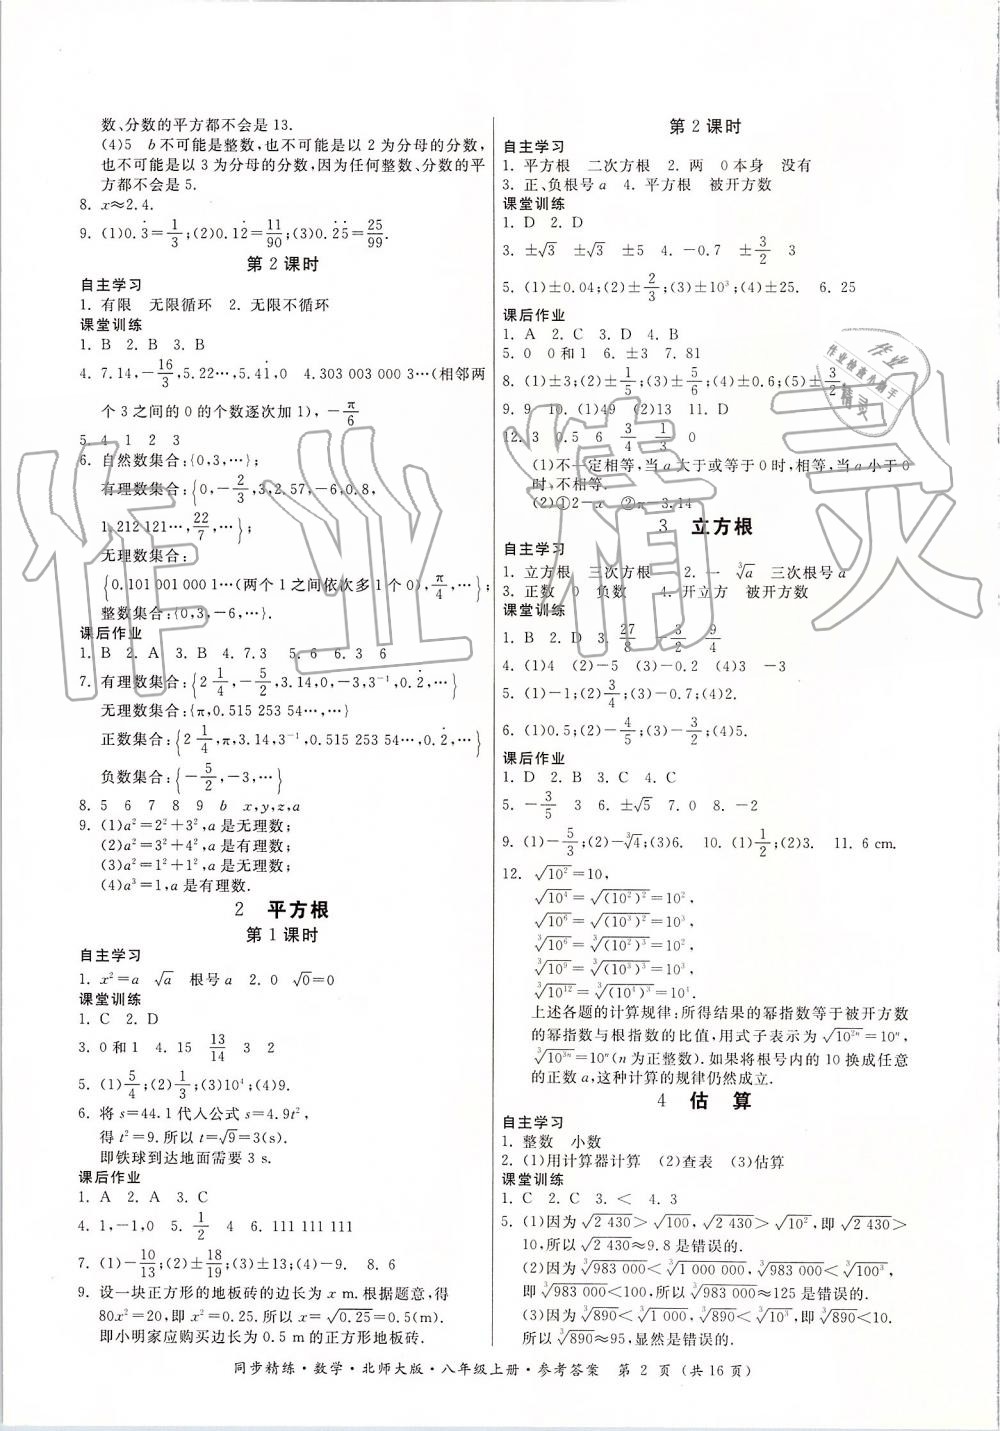 数、分数的平方都不会是 13.
(4)5　b 不可能是整数,也不可能是以 2 为分母的分数,
也不可能是以 3 为分母的分数,因为任何整数、分数的平
方都不会是 5.
8. x≈2.4.
9. (1)0.3̇=1/3;(2)0.12̇=11/90;(3)0.2̇5̇=25/99.
第 2 课时
自主学习
1. 有限　无限循环　2. 无限不循环
课堂训练
1. B　2. B　3. B
4. 7.14,-16/3,5.22…,5.41̇,0　4.303 003 000 3…(相邻两
个 3 之间的 0 的个数逐次加 1),-π/6
5. 4　1　2　3
6. 自然数集合:{0,3,…};
有理数集合:{0,-2/3,3,2.57,-6,0.8,
1.212 121…,22/7,…};
无理数集合:
{0.101 001 000 1…(两个 1 之间依次多 1 个 0),π/4,…};
整数集合:{0,3,-6,…}.
课后作业
1. B　2. A　3. B　4. 7.3　5. 6　6. 3　6
7. 有理数集合:{2 1/4,-5/2,3.14,0,-3,3⁻¹,0.2̇,…}
无理数集合:{π,0.515 253 54…,…}
正数集合:{2 1/4,π,3.14,3⁻¹,0.515 253 54…,0.2̇,…}
负数集合:{-5/2,-3,…}
8. 5　6　7　8　9　b　x,y,z,a
9. (1)a²=2²+3²,a 是无理数;
(2)a²=3²+4²,a 是有理数;
(3)a²=1²+1²,a 是无理数;
(4)a³=1,a 是有理数.
2　平方根
第 1 课时
自主学习
1. x²=a　√a　根号 a　2. 0　√0=0
课堂训练
1. C　2. D
3. 0 和 1　4. 15　13/14　3　2
5. (1)5/4;(2)1/3;(3)10⁴;(4)9.
6. 将 s=44.1 代人公式 s=4.9t²,
得 t²=9. 所以 t=√9=3(s).
即铁球到达地面需要 3 s.
课后作业
1. A　2. A　3. C
4. 1,-1,0　5. 1/2　4　6. 111 111 111
7. (1)-10/13;(2)±18/19;(3)13;(4)-9.　8. 6
9. 设一块正方形的地板砖的边长为 x m. 根据题意,得
80x²=20,即 x²=0.25. 所以 x=√0.25=0.5(m).
即小明家应购买边长为 0.5 m 的正方形地板砖.
第 2 课时
自主学习
1. 平方根　二次方根　2. 两　0 本身　没有
3. 正、负根号 a　4. 平方根　被开方数
课堂训练
1. D　2. D
3. ±√3　±√3　±5　4. -0.7　±3/2　3
5. (1)±0.04;(2)±2/3;(3)±10³;(4)±25.　6. 25
课后作业
1. A　2. C　3. D　4. B
5. 0　0 和 1　6. ±3　7. 81
8. (1)±3;(2)±1/5;(3)±5/6;(4)±0.6;(5)±3/2
9. 9　10. (1)49　(2)13　11. D
12. 3　0.5　6　3/4　1/3　0
(1)不一定相等,当 a 大于或等于 0 时,相等,当 a 小于 0
时,不相等.
(2)①2-x　②π-3.14
3　立方根
自主学习
1. 立方根　三次方根　2. 一　∛a　三次根号 a
3. 正数　0　负数　4. 开立方　被开方数
课堂训练
1. B　2. D　3. 27/8　3/2　9/4
4. (1)4　(2)-5　(3)-0.2　(4)3　-3
5. (1)-1;(2)3/4;(3)-0.7;(4)2.
6. (1)0.5;(2)-4/5;(3)-3/2;(4)5.
课后作业
1. D　2. B　3. C　4. C
5. -3/5　3　6. ±√5　7. 0　8. -2
9. (1)-5/3;(2)-∛4;(3)6.　10. (1)1/2;(2)3.　11. 6 cm.
12. √10²=10,
√10⁴=√(10²)²=10²,
∛10⁶=∛(10²)³=10²,
∛10⁹=∛(10³)³=10³,
∛10¹²=∛(10⁴)³=10⁴.
上述各题的计算规律:所得结果的幂指数等于被开方数
的幂指数与根指数的比值,用式子表示为 √10²ⁿ=10ⁿ,
∛10³ⁿ=10ⁿ(n 为正整数). 如果将根号内的 10 换成任意
的正数 a,这种计算的规律仍然成立.
4　估　算
自主学习
1. 整数　小数
2. (1)用计算器计算　(2)查表　(3)估算
课堂训练
1. C　2. C　3. <　4. 3
5. (1)因为 √2 430>√100,√2 430>√10²,即 √2 430>
10,所以 √2 430≈9.8 是错误的.
(2)因为 ∛983 000<∛1 000 000,∛983 000<∛100³,
即 ∛983 000<100,所以 ∛983 000≈125 是错误的.
(3)因为 ∛890<∛1 000,∛890<∛10³,即 ∛890<10.
所以 ∛890≈95,显然是错误的.
同步精练·数学·北师大版·八年级上册·参考答案　第 2 页 (共 16 页)
作业精灵
作业
作业检查小助手
精灵